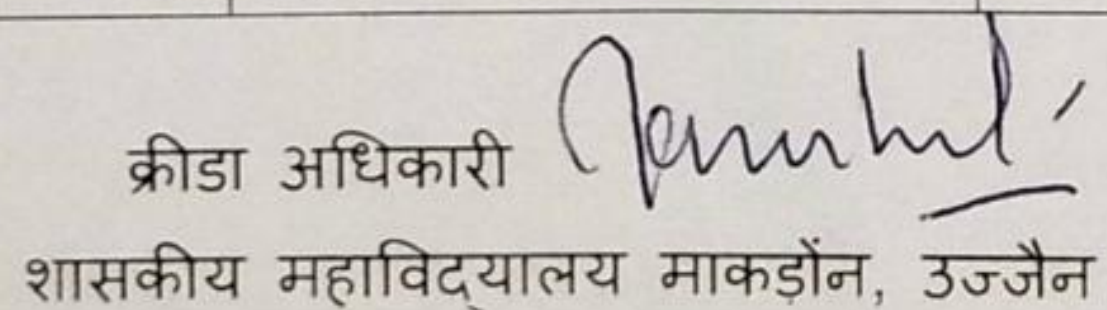 क्रीडा अधिकारी
शासकीय महाविद्यालय माकड़ोंन, उज्जैन